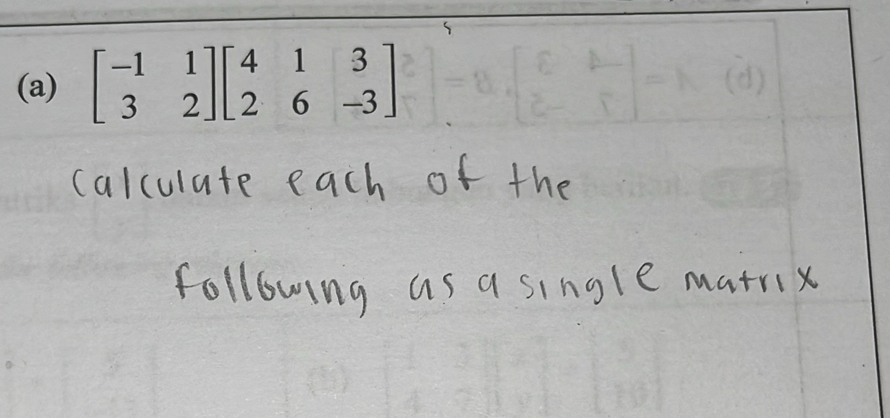 (a) [-1 1] [4 1 3]
[3 2] [2 6 -3]
Calculate each of the
following as a single matrix